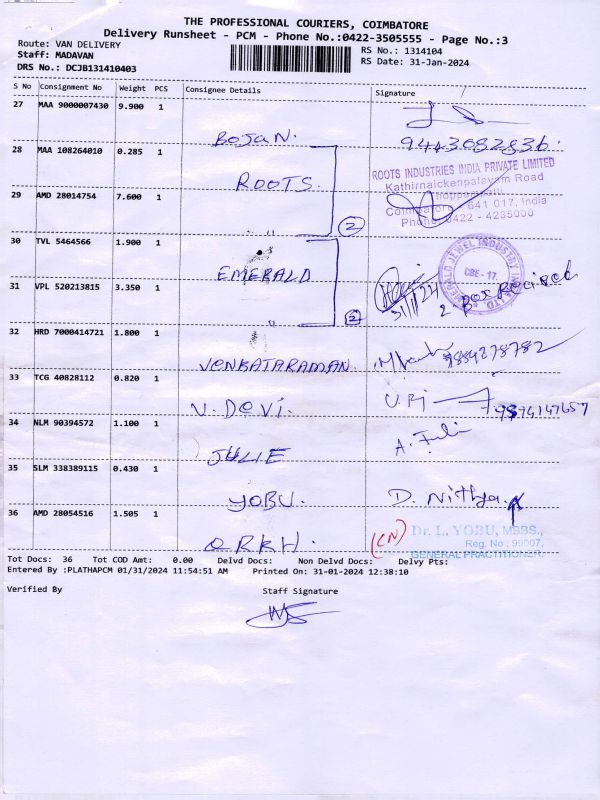 THE PROFESSIONAL COURIERS, COIMBATORE
Delivery Runsheet - PCM - Phone No.:0422-3505555 - Page No.:3
Route: VAN DELIVERY
RS No.: 1314104
Staff: MADAVAN
RS Date: 31-Jan-2024
DRS No.: DCJB131410403
S No Consignment No Weight PCS Consignee Details Signature
27 MAA 9000007430 9.900 1
BOJAN.
9443082836.
28 MAA 108264010 0.285 1
ROOTS.
ROOTS INDUSTRIES INDIA PRIVATE LIMITED
Kathirnaickenpalayam Road
641 017, India
Phone 0422 - 4235000
29 AMD 28014754 7.600 1
2
30 TVL 5464566 1.900 1
EMERALD
EMERALD JEWEL INDUSTRY
CBE - 17.
31 VPL 520213815 3.350 1
31/1/24
2 Box
2
32 HRD 7000414721 1.800 1
VENKATARAMAN
9884278782
33 TCG 40828112 0.820 1
V. DEVI.
34 NLM 90394572 1.100 1
JULIE
A. Juli
35 SLM 338389115 0.430 1
YOBU.
D. Nithya
36 AMD 28054516 1.505 1
(CN)
Dr. L. YOBU, MBBS.,
Reg. No : 99007,
GENERAL PRACTITIONER
Tot Docs: 36 Tot COD Amt: 0.00 Delvd Docs: Non Delvd Docs: Delvy Pts:
Entered By :PLATHAPCM 01/31/2024 11:54:51 AM Printed On: 31-01-2024 12:38:10
Verified By Staff Signature